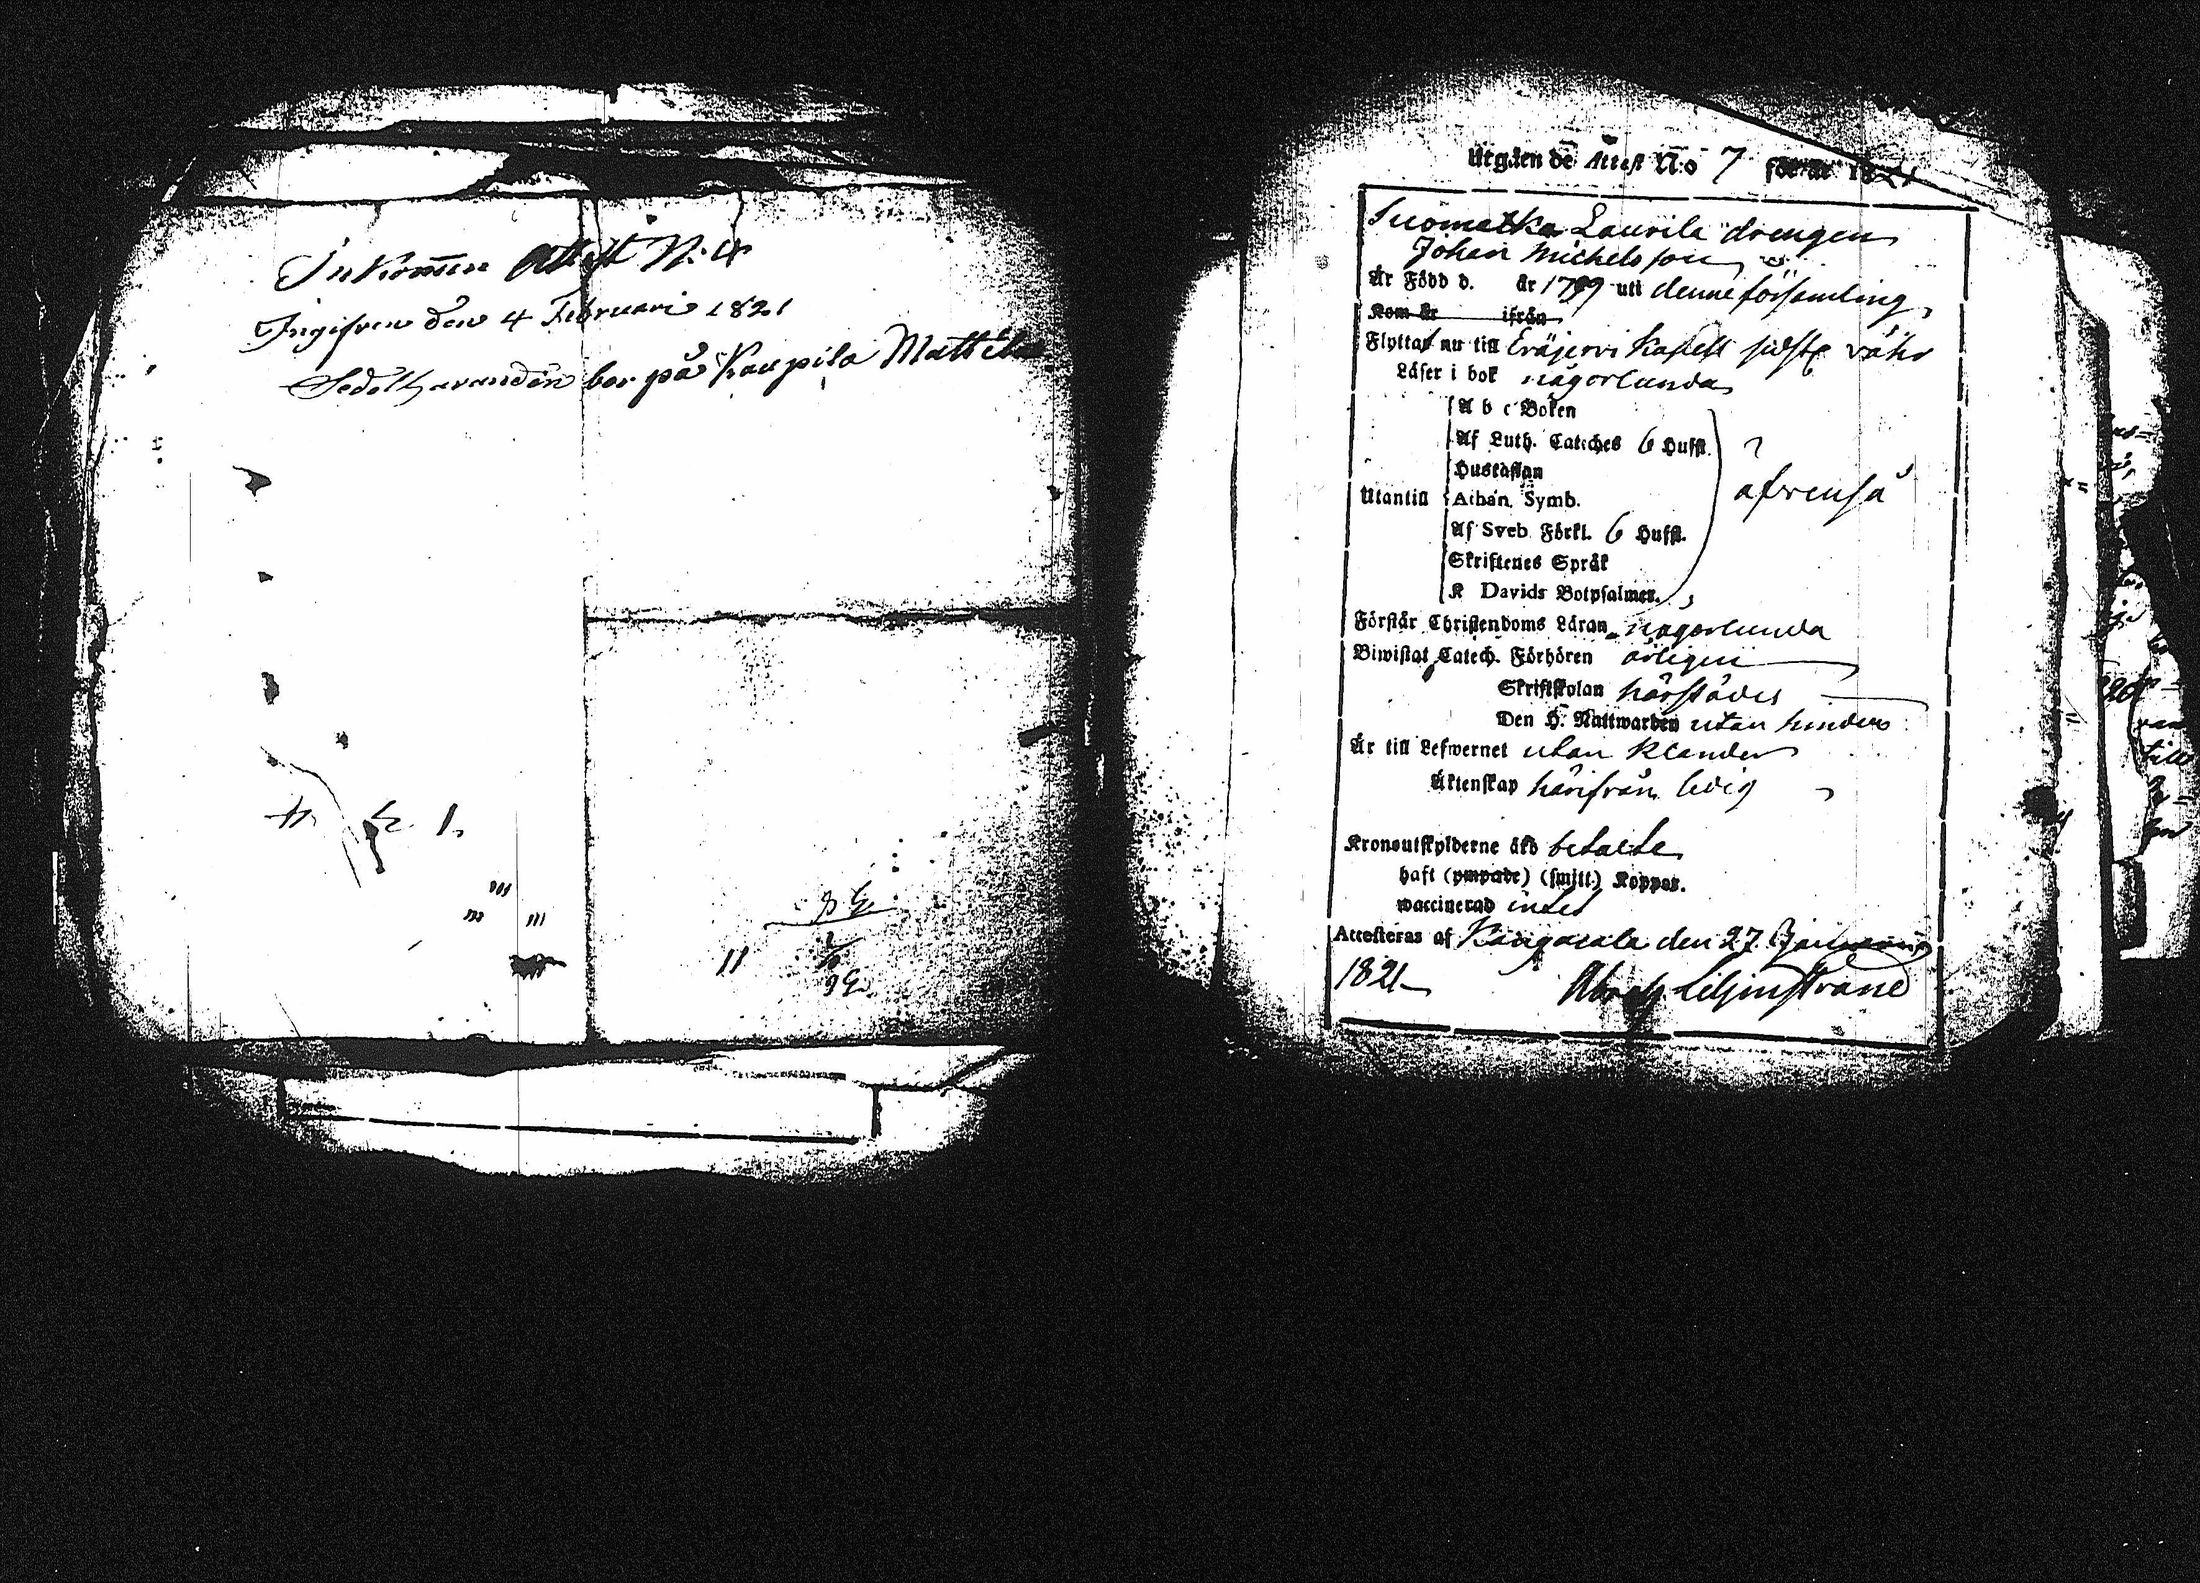 Inkommen Attest N:4
Ingifven den 4 Februari 1821
Sedelhavanden bor på Kaupila Mattila
11
Utgåen de Attest No 7 för år 1821
Suomatka Laurila drengen
Johan Michelsson
Är Född d. år 1799 uti denne församling
Kom år ifrån
Flyttar nu till Eräjervi Kapell sidste våhr
Läser i bok någorlunda
A b c Boken
Af Luth. Cateches 6 Hufst.
Hustaflan
Utantill Athan. Symb.
afvenså
Af Sveb Förkl. 6 Hufst.
Skriftenes Språk
K Davids Botpsalmer.
Förstår Christendoms Läran någorlunda
Biwistat Catech. Förhören årligen
Skriftskolan härstädes
Den H. Nattwarden utan hinder
Är till Lefwernet utan klander
Äktenskap härifrån ledig
Kronoutskylderne äro betalte
haft (ympade) (smitt.) Koppor.
waccinerad
Attesteras af Kangasala den 27 Januari
1821 Abrah Liljenstrand